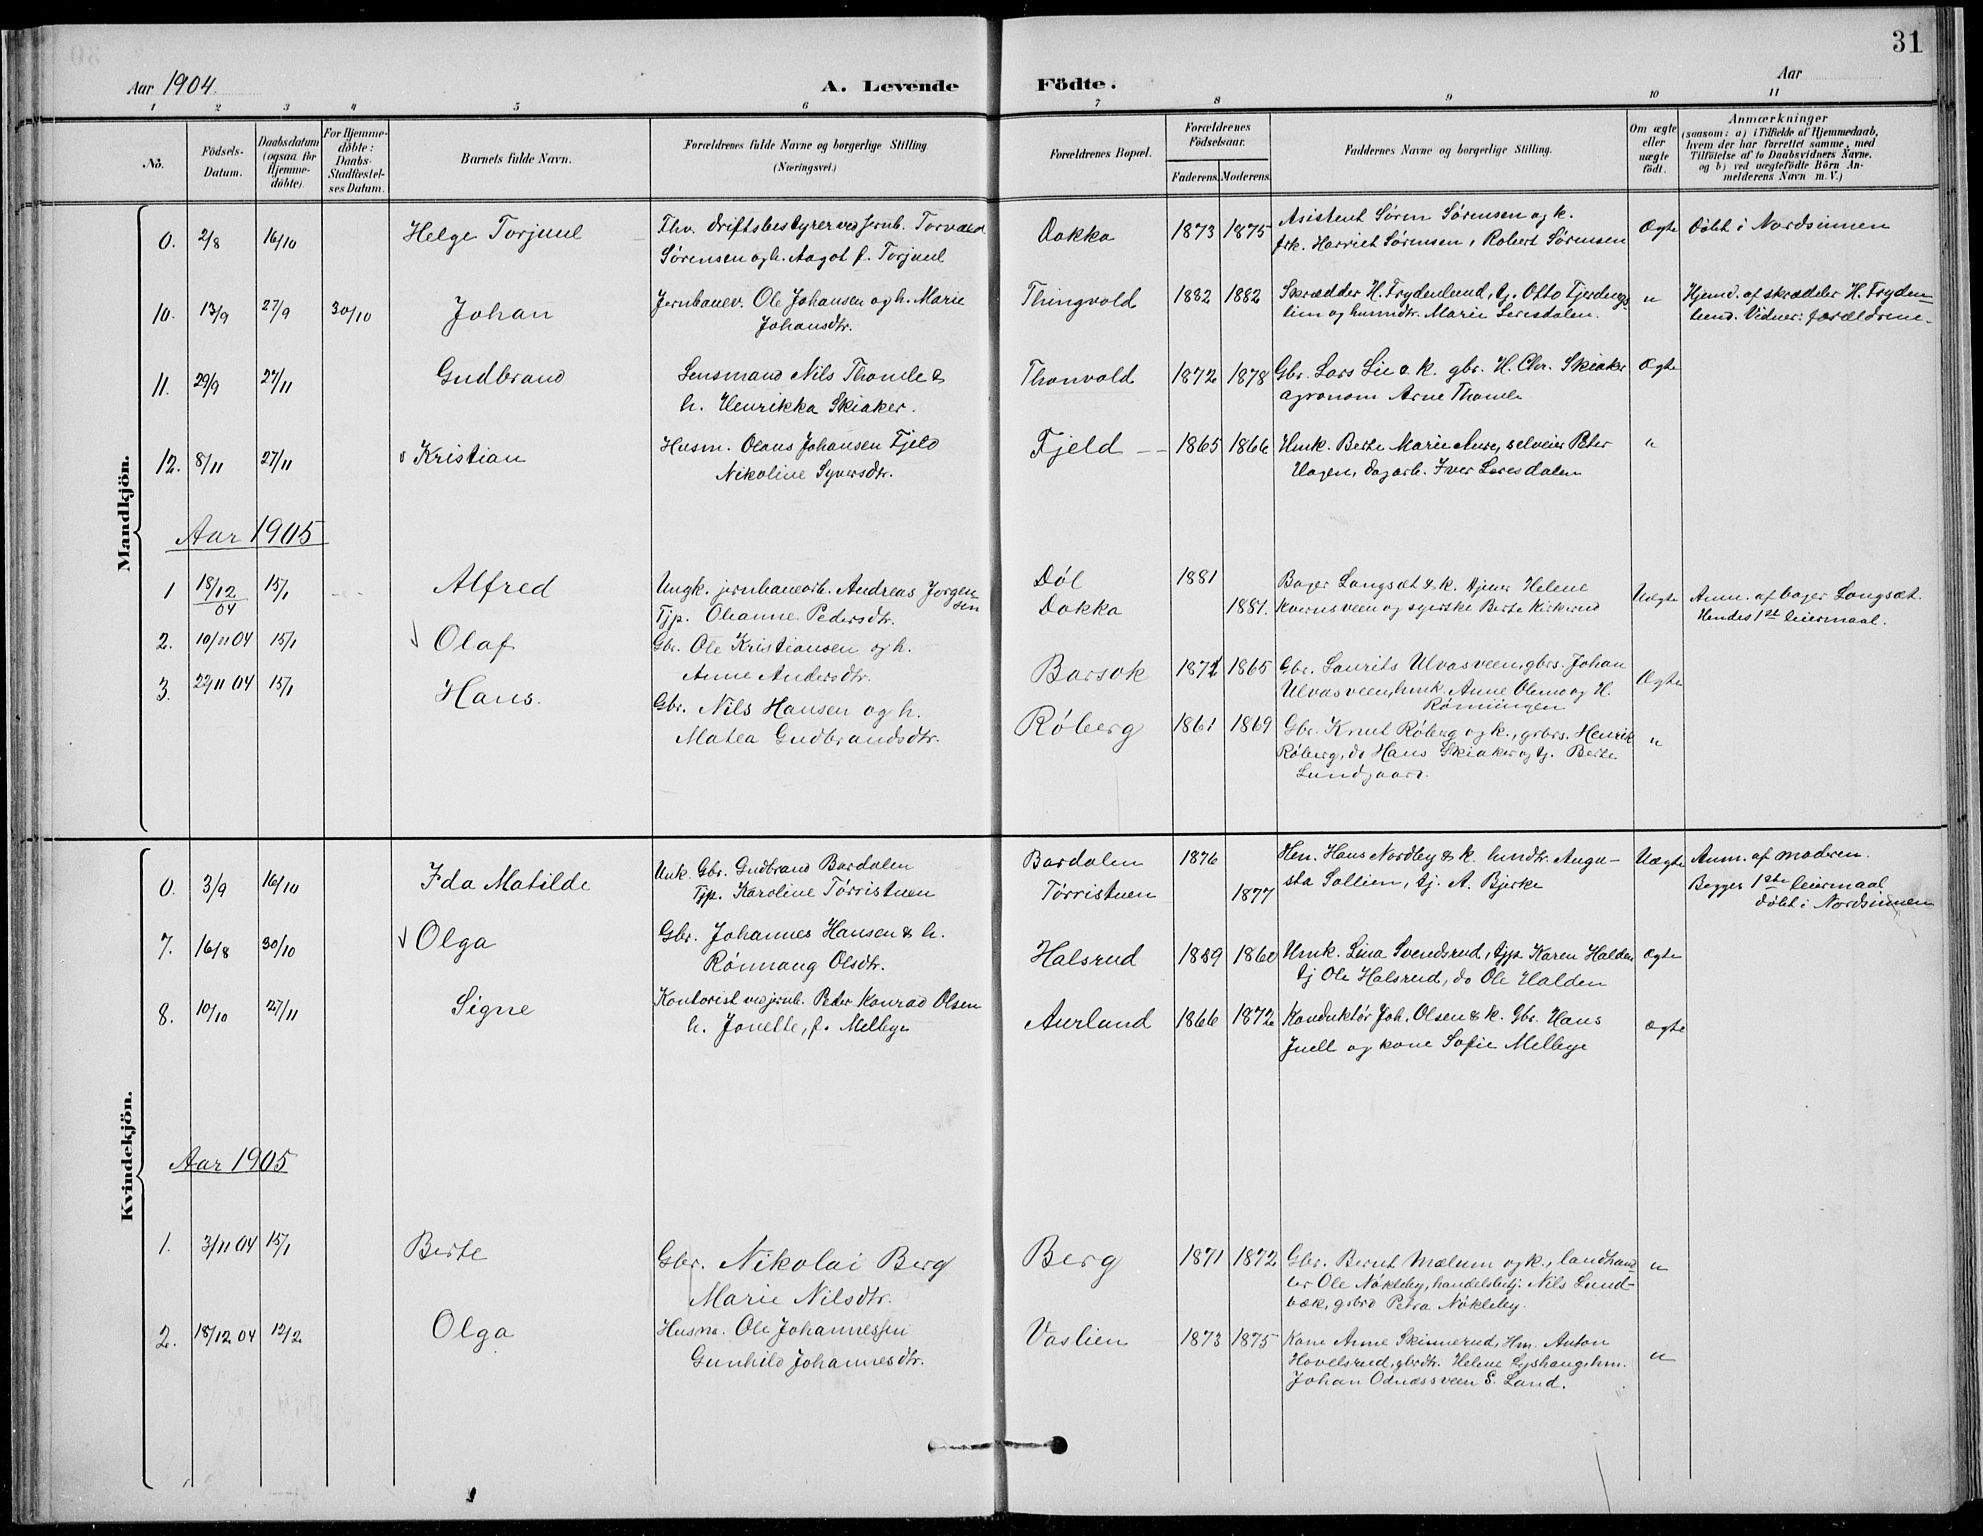 31
Aar 1904.
A. Levende Födte.
Aar
1 2 3 4 5 6 7 8 9 10 11
Nö.
Födsels-Datum.
Daabsdatum (ogsaa for Hjemme-döbte).
For Hjemme-döbte: Daabs-Stadfæstel-ses Datum.
Barnets fulde Navn.
Forældrenes fulde Navne og borgerlige Stilling. (Næringsvei.)
Forældrenes Bopæl.
Forældrenes Födselsaar.
Faderens. Moderens.
Faddernes Navne og borgerlige Stilling.
Om ægte eller uægte födt.
Anmærkninger (saasom: a) i Tilfælde af Hjemmedaab, hvem der har forrettet samme, med Tilföielse af to Daabsvidners Navne, og b) ved uægtefödte Börn An-melderens Navn m. V.)
Mandkjön.
0. 2/8 16/10 Helge Torjuul
Thv. driftsbestyrer ved jernb. Torvald
Sørensen og h. Aagot f. Torjuul
Dokka 1873 1875
Asistent Søren Sørensen og k.
frk. Harriet Sørensen, Robert Sørensen
Ægte Døbt i Nordsinnen
10. 13/9 27/9 30/10 Johan
Jernbanev. Ole Johansen og h. Marie
Johansdtr.
Thingvold 1882 1882
Skrædder H. Frydenlund, tj. Otto Fjerdings
lien og husmdtr. Marie Leresdalen.
" Hjemd. af skrædder H. Fryden-
lund. Vidner: forældrene.
11. 29/9 27/11 Gudbrand
Lensmand Nils Thomle &
h. Henrikka Skiaker.
Thonvold 1872 1878
Gbr. Lars Lie o. k. gbr. H. Chr. Skiaker
agronom Arne Thomle
Ægte
12. 8/11 27/11 Kristian
Husm. Olaus Johansen Fjeld
Nikoline Syversdtr.
Fjeld 1865 1866
Hmk. Berte Marie Aure, selveier Peter
Hagen, dagarb. Iver Leresdalen
"
Aar 1905
1 18/12 04 15/1 Alfred
Ungk. jernbanearb. Andreas Jørgen
sen
Tjp. Oleanne Pedersdtr.
Døl 1881
Dokka 1881.
Bager Langsæt & k. tjener Helene
Kvernsveen og syerske Berte Kirkerud
Uægte Anm. af bager Langsæt.
Hendes 1st leiermaal.
2. 10/11 04 15/1 Olaf
Gbr. Ole Kristiansen og h.
Anne Andersdtr.
Barsok 1872 1865
Gbr. Laurits Ulvasveen, gbrs. Johan
Ulvasveen, hmk. Anne Olemo og H.
Rønningen
Ægte
3. 22/11 04 15/1 Hans.
Gbr. Nils Hansen og h.
Matea Gudbrandsdtr.
Røberg 1861 1869
Gbr. Knut Røberg og k., grbrs. Henrik
Røberg, do Hans Skiaker og tj. Berte
Lundgaard.
"
Kvindekjön.
0. 3/9 16/10 Ida Matilde
Unk. Gbr. Gudbrand Bardalen
Tjp. Karoline Tørristuen
Bardalen 1876
Tørristuen 1877
Hm. Hans Nordby & k. hmdtr. Augu-
sta Sollien, tj. A. Bjerke
Uægte Anm. af moderen.
Begges 1ste leiermaal
døbt i Nordsinnen
7. 16/8 30/10 Olga
Gbr. Johannes Hansen & h.
Rønnaug Olsdtr.
Halsrud 1859 1860
Hmk. Lina Svendsrud, tjp. Karen Halden
tj Ole Halsrud, do Ole Halden
Ægte
8. 10/10 27/11 Signe
Kontorist ved jernb. Peter Konrad Olsen
h. Jonette, f. Melbye
Aurlund 1866 1872
Konduktør Joh. Olsen & k. Gbr. Hans
Juell og kone Sofie Melbye
Ægte
Aar 1905
1. 3/11 04 15/1 Berte
Gbr. Nikolai Berg
Marie Nilsdtr.
Berg 1871 1872
Gbr. Bernt Mælum og k., landhand-
ler Ole Nøkleby, handelsbetj. Nils Lund-
bæk, gsbrd Petra Nøkleby.
"
2. 18/12 04 12/2 Olga
Husm. Ole Johannessen
Gunhild Johannesdtr.
Vaslien 1873 1875
Kone Anne Skinnerud, Hm. Anton
Hovelsrud, gbrdtr. Helene Lyshaug, hm.
Johan Odnæssveen S. Land.
"